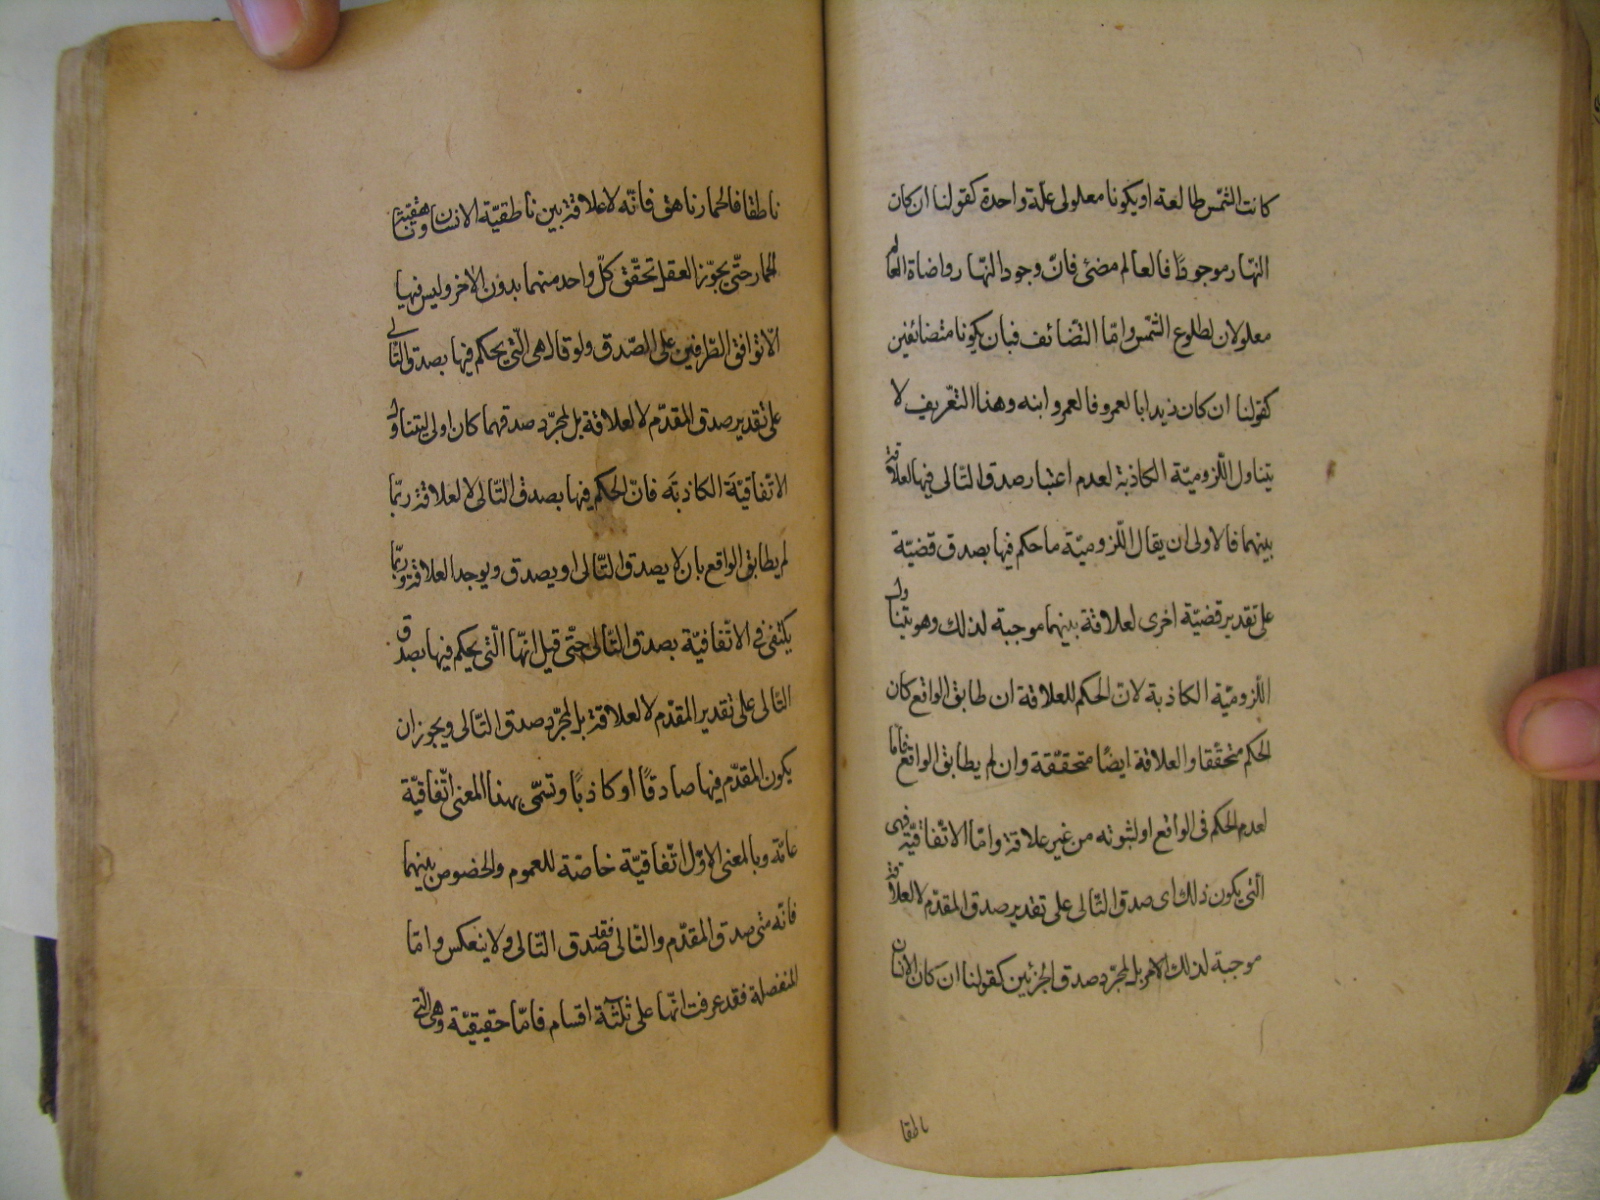 كانت الشمس طالعة او يكونا معلولى علّة واحدة كقولنا ان كان
النهار موجودًا فالعالم مضئ فانّ وجود النهار واضاة العالم
معلولان لطلوع الشمس وامّا التّضائف فبان يكونا متضائفين
كقولنا ان كان زيد ابا لعمرو فالعمرو ابنه وهذا التعّريف لا
يتناول اللّزوميّة الكاذبة لعدم اعتبار صدق التّالى فيها لعلاقة
بينهما فالاولى ان يقال اللّزوميّة ما حكم فيها بصدق قضيّة
على تقدير قضيّة اخرى لعلاقة بينهما موجبة لذلك وهو يتناول
اللّزوميّة الكاذبة لانّ الحكم للعلاقة ان طابق الواقع كان
الحكم متحققا والعلاقة ايضًا متحقّقة وان لم يطابق الواقع فاما
لعدم الحكم فى الواقع او لثبوته من غير علاقة وامّا الاتّفاقيّة فهى
الّتى يكون ذلك اى صدق التّالى على تقدير صدق المقدّم لا لعلاقة
موجبة لذلك الامر بل لمجرّد صدق الجزئين كقولنا ان كان الانسان
ناطقا
ناطقا فالحمار ناهق فانّه لا علاقة بين ناطقيّة الانسان وناهقيّة
الحمار حتّى يجوّز العقل تحقّق كلّ واحد منهما بدون الاخر وليس فيها
الّا توافق الطّرفين على الصّدق ولو قال هى الّتى يحكم فيها بصدق التّالى
على تقدير صدق المقدّم لا لعلاقة بل لمجرّد صدقهما كان اولى ليتناول
الاتّفاقيّة الكاذبة فانّ الحكم فيها بصدق التّالى لا لعلاقة ربّما
لم يطابق الواقع بان لا يصدق التّالى او يصدق ويوجد العلاقة وربّما
يكتفى فى الاتّفاقيّة بصدق التّالى حتّى قيل انّها الّتى يحكم فيها بصدق
التّالى على تقدير المقدّم لا لعلاقة بل لمجرّد صدق التّالى ويجوز ان
يكون المقدّم فيها صادقًا او كاذبًا وتسمّى بهذا المعنى اتّفاقيّة
عامّة وبالمعنى الاوّل اتّفاقيّة خاصّة للعموم والخصوص بينهما
فانّه متى صدق المقدّم والتّالى فقد صدق التّالى ولا ينعكس وامّا
المنفصلة فقد عرفت انّها على ثلثة اقسام فامّا حقيقيّة وهى الّتى